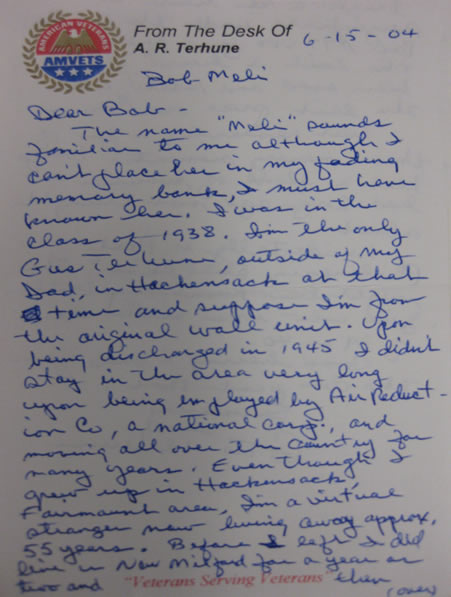 AMERICAN VETERANS
AMVETS
From The Desk Of
A. R. Terhune
6-15-04
Bob Meli
Dear Bob -
The name "Meli" sounds
familiar to me although I
can't place her in my fading
memory bank, I must have
known her. I was in the
class of 1938. I'm the only
Gus Terhune, outside of my
Dad, in Hackensack at that
time and suppose I'm from
the original wall unit. Upon
being discharged in 1945 I didn't
stay in the area very long
upon being employed by Air Reduct-
ion Co, a national corp., and
moving all over the country for
many years. Even though I
grew up in Hackensack,
Fairmount area, I'm a virtual
stranger now living away approx.
55 years. Before I left I did
live in New Milford for a year or
two and then
"Veterans Serving Veterans"
(over)